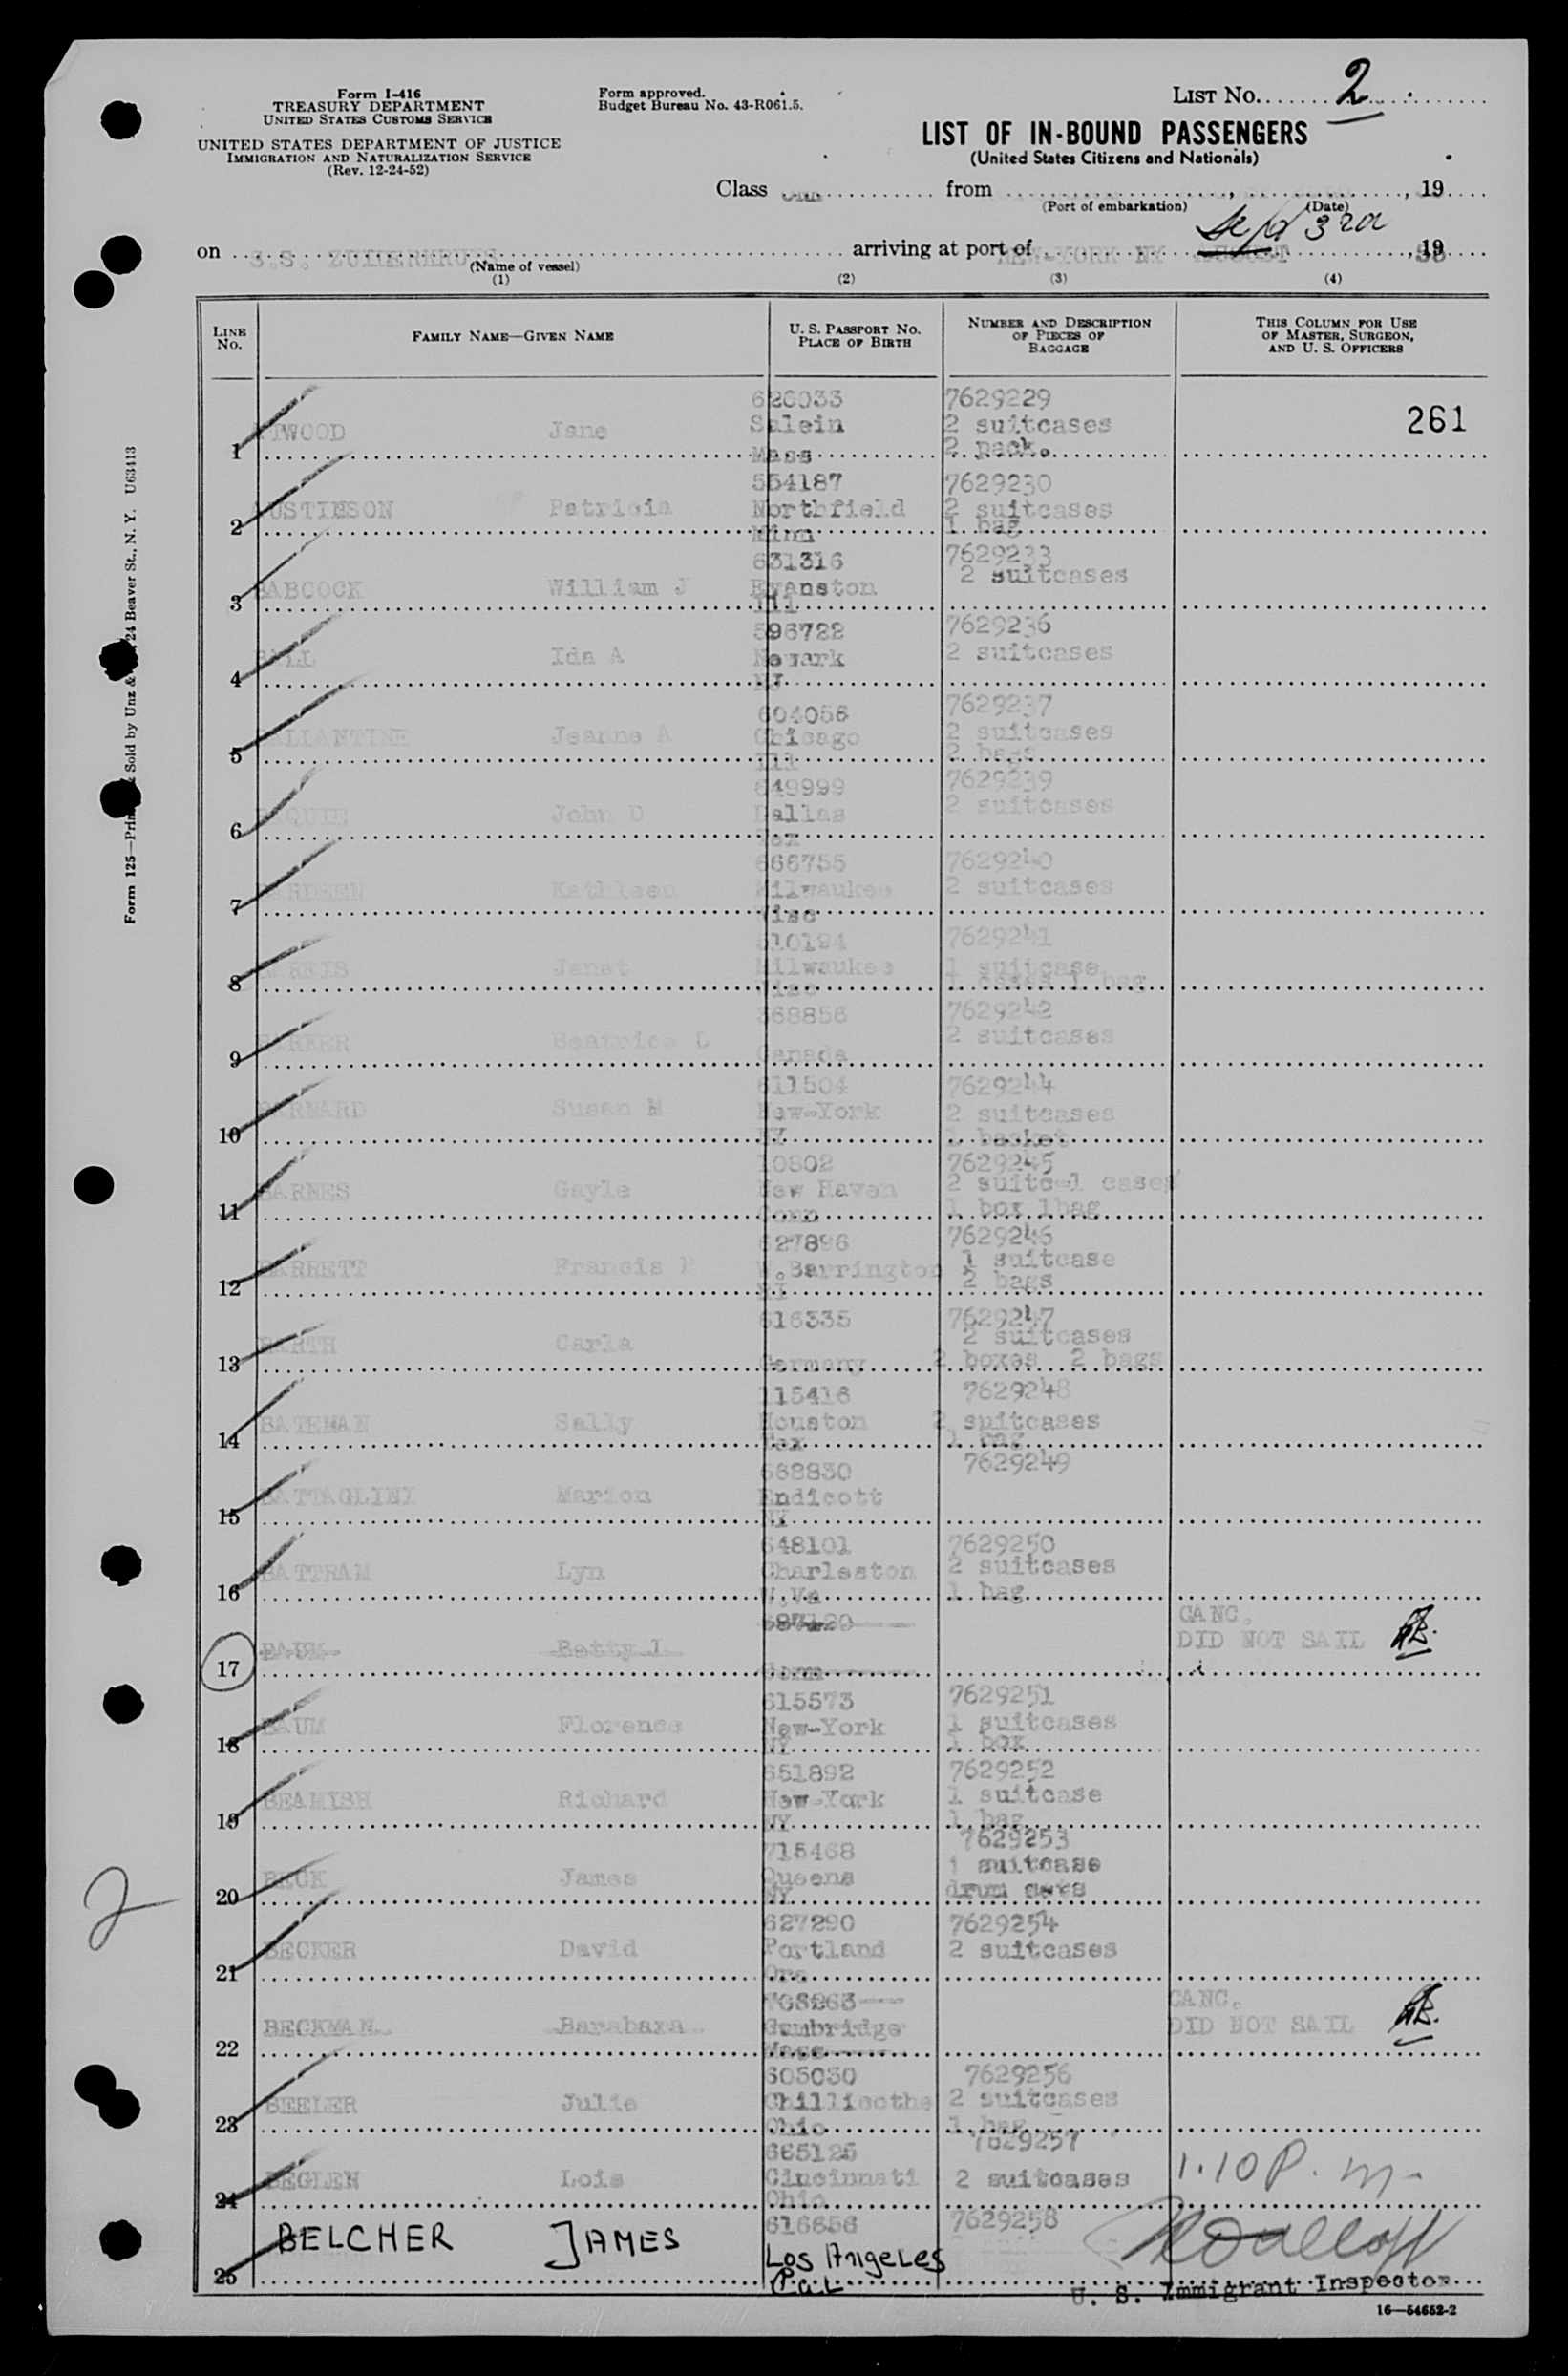 Form I-416
TREASURY DEPARTMENT
UNITED STATES CUSTOMS SERVICE
UNITED STATES DEPARTMENT OF JUSTICE
IMMIGRATION AND NATURALIZATION SERVICE
(Rev. 12-24-52)
Form approved.
Budget Bureau No. 43-R061.5.
LIST No. 2
LIST OF IN-BOUND PASSENGERS
(United States Citizens and Nationals)
Class from , , 19
(Port of embarkation) (Date)
Sept 3rd
on S.S. arriving at port of NEW-YORK NY AUGUST , 19
(Name of vessel)
(1) (2) (3) (4)
LINE No. FAMILY NAME—GIVEN NAME U. S. PASSPORT No. PLACE OF BIRTH NUMBER AND DESCRIPTION OF PIECES OF BAGGAGE THIS COLUMN FOR USE OF MASTER, SURGEON, AND U. S. OFFICERS
261
626033 7629229
TWOOD Jane Salein 2 suitcases
1 Mass 2 pack.
554187 7629230
USTINSON Patricia Northfield 2 suitcases
2 Minn 1 bag
631316 7629233
BABCOCK William J Evanston 2 suitcases
3 Ill
596722 7629236
BALL Ida A Newark 2 suitcases
4 NJ
604056 7629237
LLIANTINE Jeanne A Chicago 2 suitcases
5 Ill 2 bags
649999 7629239
QUIE John D Dallas 2 suitcases
6 Tex
666755 7629240
Kathleen Milwaukee 2 suitcases
7 Wisc
610194 7629241
Janet Milwaukee 1 suitcase
8 Wisc 1 cases 1 bag
368856 7629242
BARKER Beatrice D 2 suitcases
9 Canada
611504 7629244
BARNARD Susan M New-York 2 suitcases
10 NY 1 basket
10802 7629245
BARNES Gayle New Haven 2 suitc-1 cases
11 Conn 1 box 1bag
627896 7629246
BARRETT Francis W.Barrington 1 suitcase
12 RI 2 bags
616335 7629247
BARTH Carla 2 suitcases
13 Germany 2 boxes 2 bags
115416 7629248
BATEMAN Sally Houston 2 suitcases
14 Tex 1 bag
668830 7629249
BATTAGLINI Marion Endicott
15 NY
648101 7629250
BATTRAM Lyn Charleston 2 suitcases
16 W.Va 1 bag
CANC.
BAUM Betty I DID NOT SAIL
17 Germ
615573 7629251
BAUM Florence New-York 1 suitcases
18 NY 1 box
651892 7629252
BEAMISH Richard New-York 1 suitcase
19 NY 1 bag
715468 7629253
BECK James Queens 1 suitcase
20 NY drum
627290 7629254
BECKER David Portland 2 suitcases
21 Ore
708263 CANC.
BECKMAN Barabara Cambridge DID NOT SAIL
22 Mass
605030 7629256
BEELER Julie Chillicothe 2 suitcases
23 Ohio 1 bag
665125 7629257
BEGLEN Lois Cincinnati 2 suitcases 1.10 P.m.
24 Ohio
616656 7629258
BELCHER JAMES Los Angeles
25 Cal
U. S. Immigrant Inspector
16—54652-2
Form 125—Printed & Sold by Unz & 24 Beaver St., N. Y. U63413
2